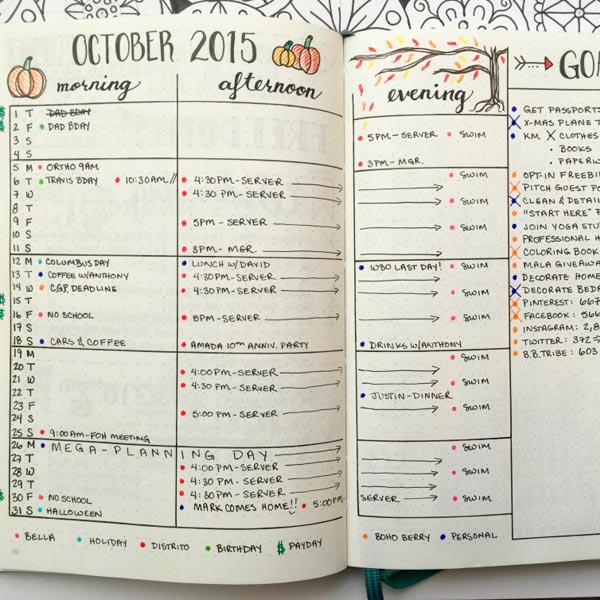 OCTOBER 2015
morning afternoon evening
1 T DAD BDAY
2 F DAD BDAY 5PM-SERVER SWIM
3 S
4 S 3PM-MGR.
5 M ORTHO 9AM SWIM
6 T TRAVIS BDAY 10:30AM// 4:30PM-SERVER
7 W 4:30 PM-SERVER
8 T SWIM
9 F 5PM-SERVER
10 S
11 S 3PM-MGR.
12 M COLUMBUS DAY LUNCH W/DAVID W30 LAST DAY! SWIM
13 T COFFEE W/ANTHONY 4:30PM-SERVER
14 W CGP DEADLINE 4:30PM-SERVER SWIM
$ 15 T
$ 16 F NO SCHOOL 8PM-SERVER SWIM
17 S
18 S CARS & COFFEE AMADA 10TH ANNIV. PARTY DRINKS W/ANTHONY
19 M SWIM
20 T 4:00PM-SERVER
21 W 4:30PM-SERVER SWIM
22 T JUSTIN-DINNER
23 F 5:00PM-SERVER SWIM
24 S
25 S 9:00AM-FOH MEETING
26 M MEGA-PLANNING DAY SWIM
27 T 4:00 PM-SERVER
28 W 4:30PM-SERVER SWIM
29 T 4:30PM-SERVER
$ 30 F NO SCHOOL MARK COMES HOME!! 5:00PM- SERVER SWIM
31 S HALLOWEEN
BELLA HOLIDAY DISTRITO BIRTHDAY $ PAYDAY
92
BOHO BERRY PERSONAL
GOA
GET PASSPORTS
X-MAS PLANE T
KM X CLOTHES
BOOKS
PAPERW
OPT-IN FREEBI
PITCH GUEST PO
CLEAN & DETAIL
"START HERE" P
JOIN YOGA STU
PROFESSIONAL H
COLORING BOOK
MALA GIVEAWA
DECORATE HOME
DECORATE BEDR
PINTEREST: 667
FACEBOOK: 566
INSTAGRAM: 2,8
TWITTER: 372
B.B. TRIBE: 603